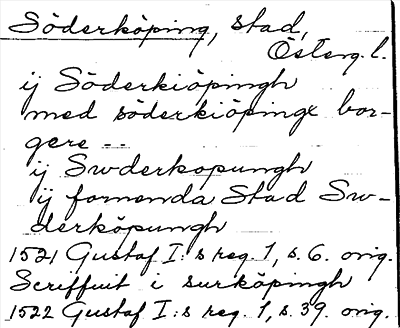 Söderköping, stad,
Österg. l.
ij Söderkiöpingh
med söderkiöpingx bor-
gere --
ij Swderkopungh
ij fornenda Stad Sw-
derköpungh
1521 Gustaf I:s reg. 1, s. 6. orig.
Scriffuit i surköpingh
1522 Gustaf I:s reg. 1, s. 39. orig.